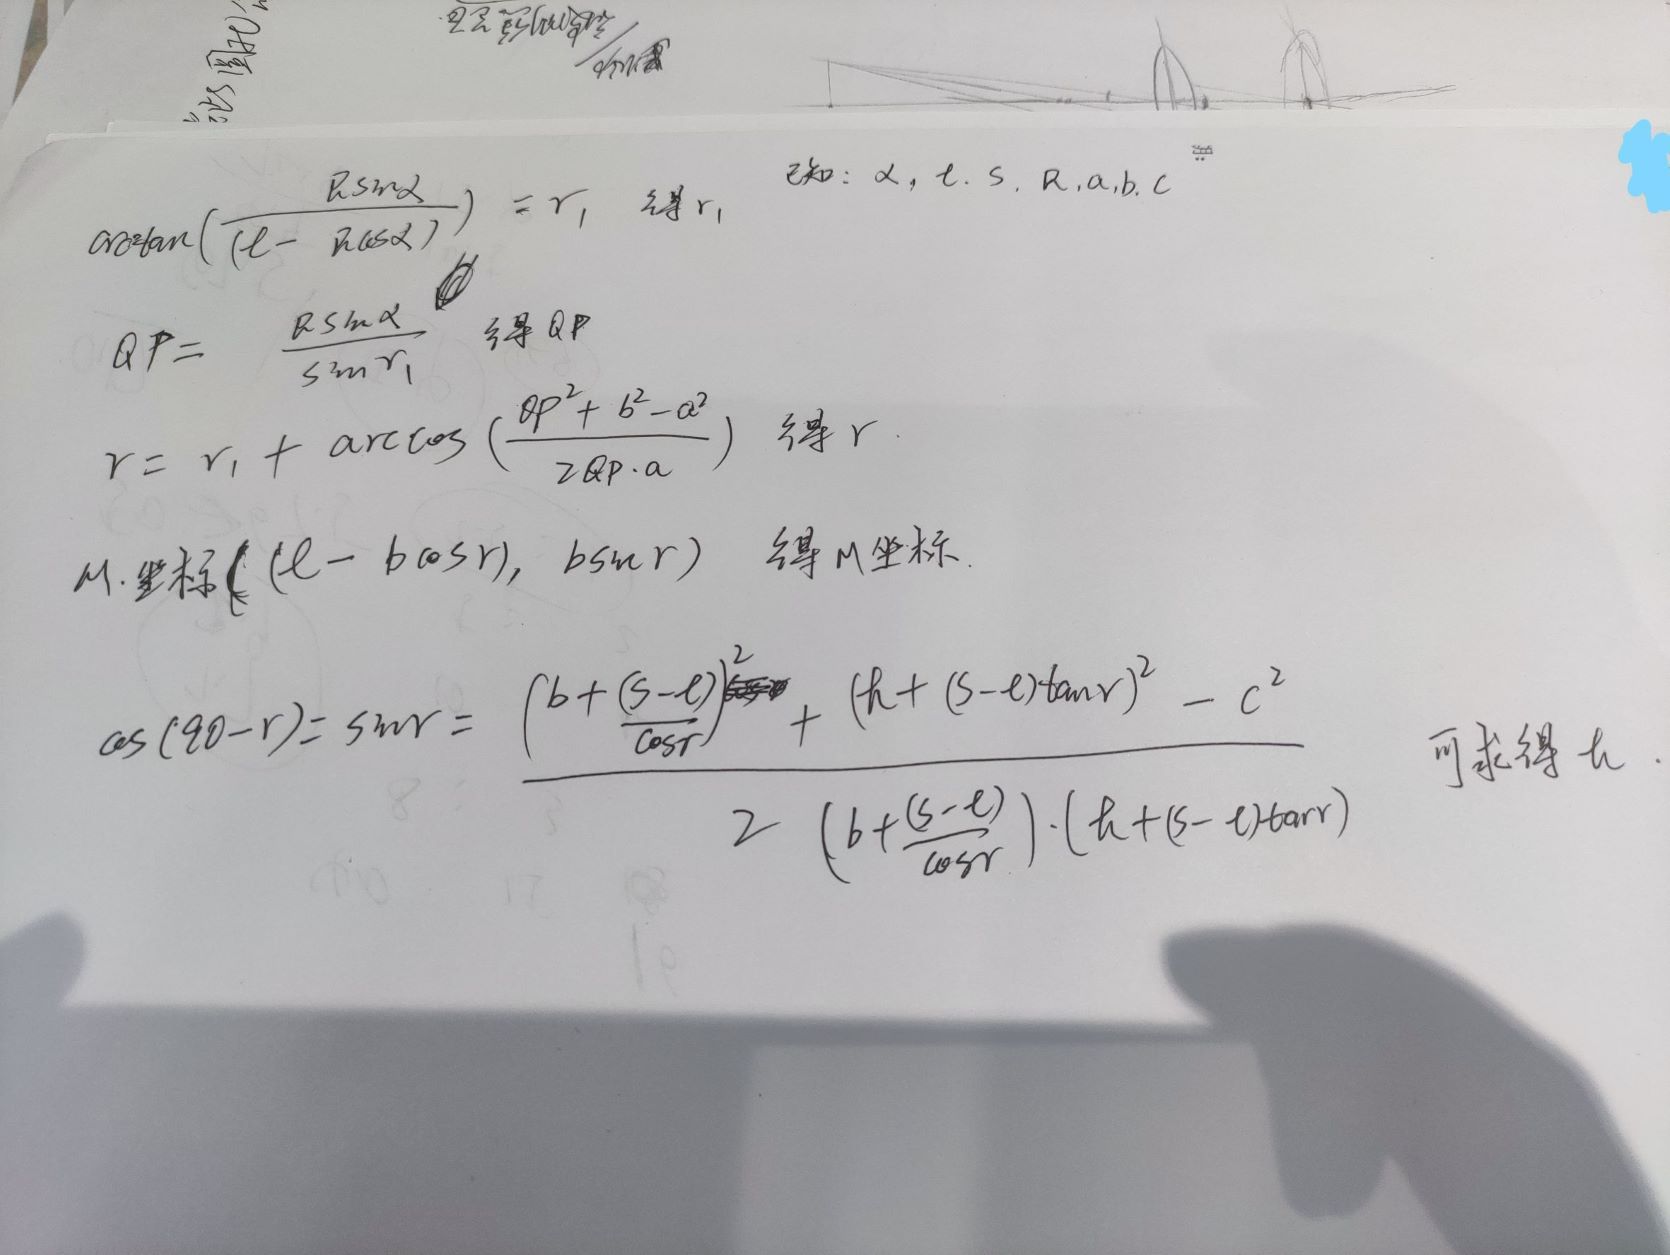 已知：α, l. S. R.a.b.c
arctan(Rsinα/(l-Rcosα)) = r₁ 得r₁
QP = Rsinα/sinr₁ 得QP
r = r₁ + arccos(QP²+b²-a²/2QP·a) 得r.
M.坐标((l-bcosr), bsinr) 得M坐标.
cos(90-r)=sinr= (b+(S-l)/cosr)²+(h+(S-l)tanr)²-c²/2(b+(S-l)/cosr)·(h+(S-l)tanr) 可求得h.